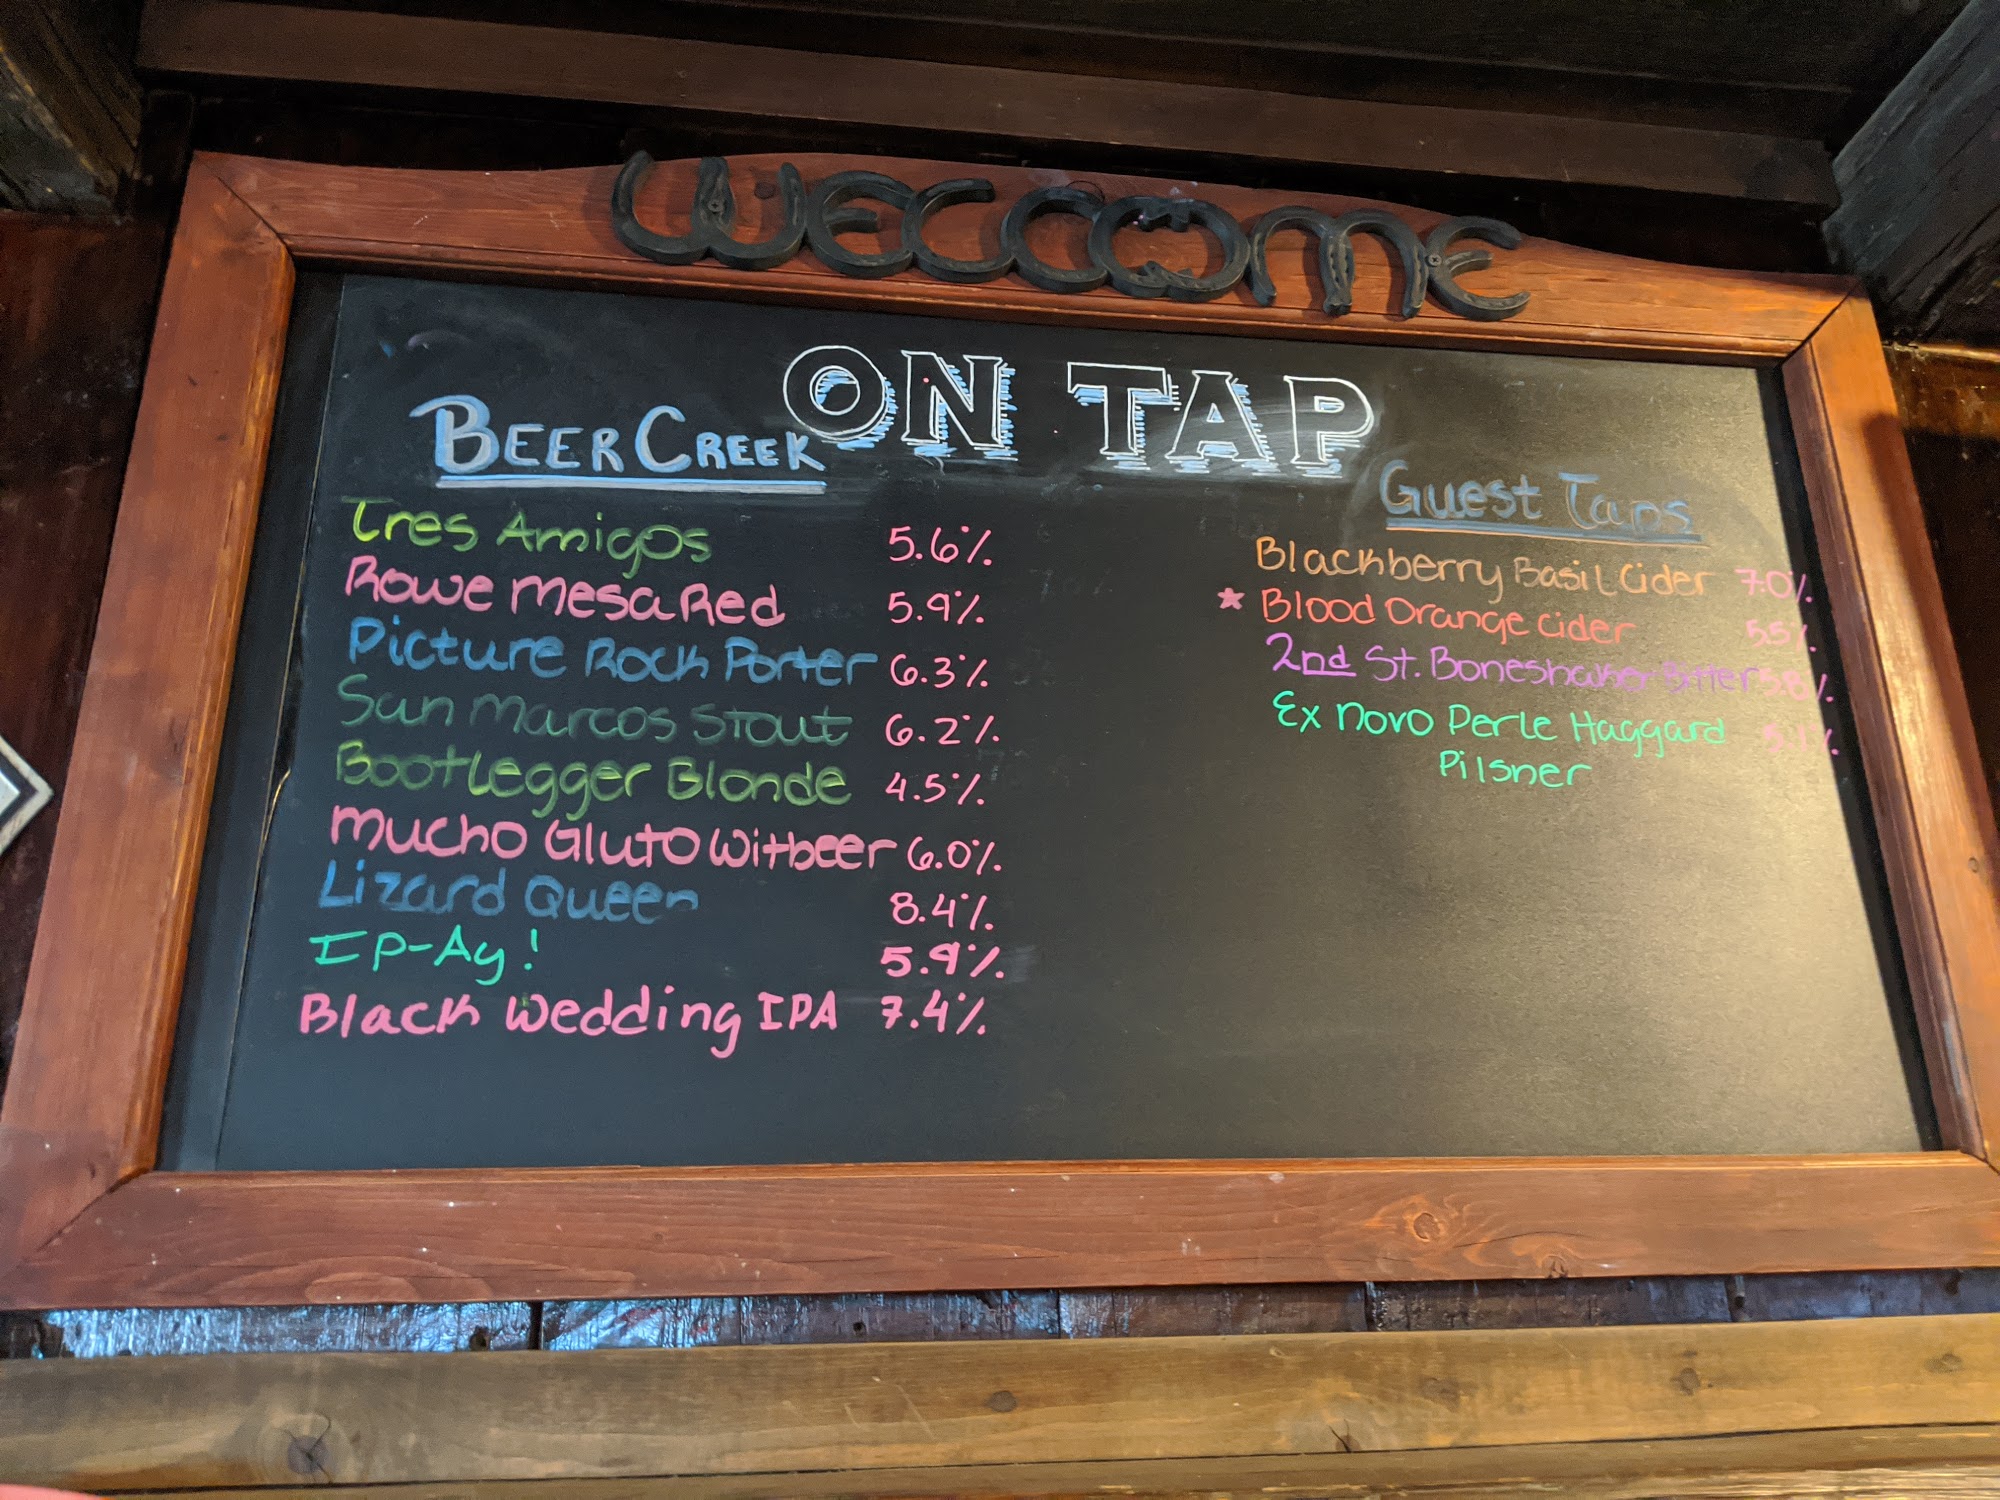 WELCOME
ON TAP
BEER CREEK
Tres Amigos 5.6%
Rowe Mesa Red 5.9%
Picture Rock Porter 6.3%
San Marcos Stout 6.2%
Bootlegger Blonde 4.5%
Mucho Gluto Witbeer 6.0%
Lizard Queen 8.4%
IP-Ay! 5.9%
Black Wedding IPA 7.4%
Guest Taps
Blackberry Basil Cider 7.0%
Blood Orange Cider 5.5%
2nd St. Boneshaker Bitter 5.8%
Ex Novo Perle Haggard 5.1%
Pilsner